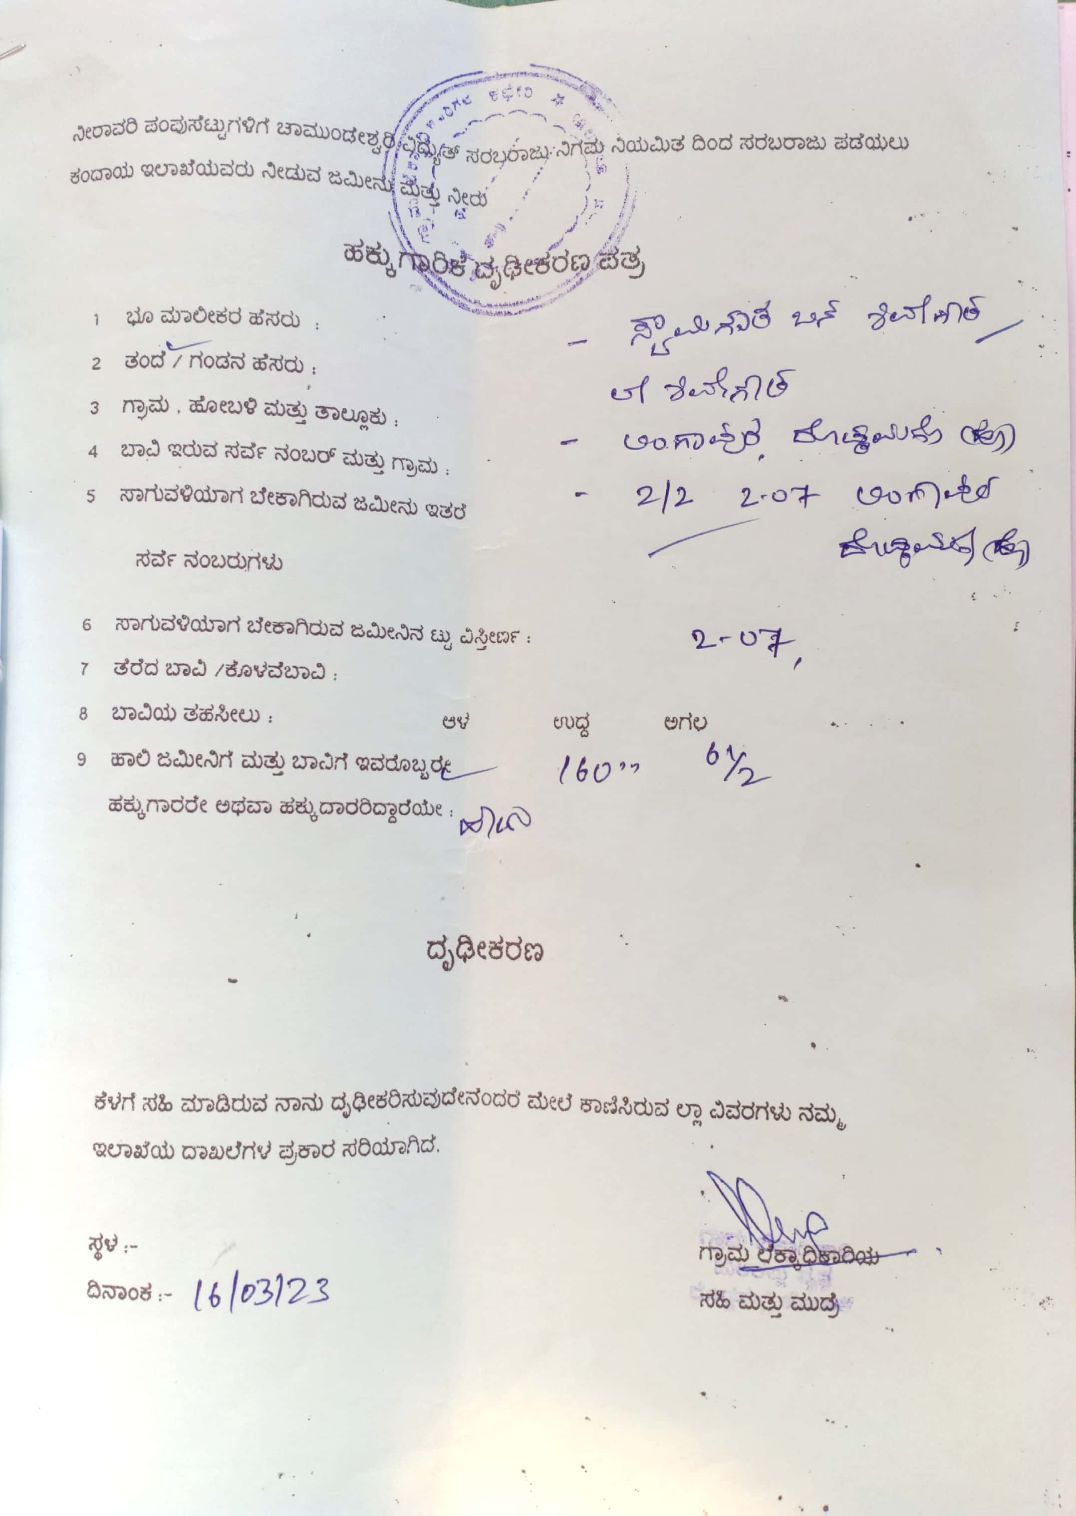 ನೀರಾವರಿ ಪಂಪುಸೆಟ್ಟುಗಳಿಗೆ ಚಾಮುಂಡೇಶ್ವರಿ ವಿದ್ಯುತ್ ಸರಬರಾಜು ನಿಗಮ ನಿಯಮಿತ ದಿಂದ ಸರಬರಾಜು ಪಡೆಯಲು
ಕಂದಾಯ ಇಲಾಖೆಯವರು ನೀಡುವ ಜಮೀನು ಮತ್ತು ನೀರು
ಹಕ್ಕುಗಾರಿಕೆ ದೃಢೀಕರಣ ಪತ್ರ
1 ಭೂ ಮಾಲೀಕರ ಹೆಸರು : - ಸ್ವಾಮಿಗೌಡ ಬಿನ್ ಶಿವೇಗೌಡ
2 ತಂದೆ / ಗಂಡನ ಹೆಸರು : ಶಿವೇಗೌಡ
3 ಗ್ರಾಮ , ಹೋಬಳಿ ಮತ್ತು ತಾಲ್ಲೂಕು :
4 ಬಾವಿ ಇರುವ ಸರ್ವೆ ನಂಬರ್ ಮತ್ತು ಗ್ರಾಮ : -
5 ಸಾಗುವಳಿಯಾಗ ಬೇಕಾಗಿರುವ ಜಮೀನು ಇತರೆ - 2/2 2-07
ಸರ್ವೆ ನಂಬರುಗಳು
6 ಸಾಗುವಳಿಯಾಗ ಬೇಕಾಗಿರುವ ಜಮೀನಿನ ಟ್ಟು ವಿಸ್ತೀರ್ಣ : 2-07,
7 ತೆರೆದ ಬಾವಿ /ಕೊಳವೆಬಾವಿ :
8 ಬಾವಿಯ ತಹಸೀಲು : ಆಳ ಉದ್ದ ಅಗಲ
9 ಹಾಲಿ ಜಮೀನಿಗೆ ಮತ್ತು ಬಾವಿಗೆ ಇವರೊಬ್ಬರೇ 160" 6 1/2
ಹಕ್ಕುಗಾರರೇ ಅಥವಾ ಹಕ್ಕುದಾರರಿದ್ದಾರೆಯೇ :
ದೃಢೀಕರಣ
ಕೆಳಗೆ ಸಹಿ ಮಾಡಿರುವ ನಾನು ದೃಢೀಕರಿಸುವುದೇನೆಂದರೆ ಮೇಲೆ ಕಾಣಿಸಿರುವ ಲ್ಲಾ ವಿವರಗಳು ನಮ್ಮ
ಇಲಾಖೆಯ ದಾಖಲೆಗಳ ಪ್ರಕಾರ ಸರಿಯಾಗಿದೆ.
ಸ್ಥಳ :-
ಗ್ರಾಮ ಲೆಕ್ಕಾಧಿಕಾರಿಯ
ದಿನಾಂಕ :- 16/03/23
ಸಹಿ ಮತ್ತು ಮುದ್ರೆ